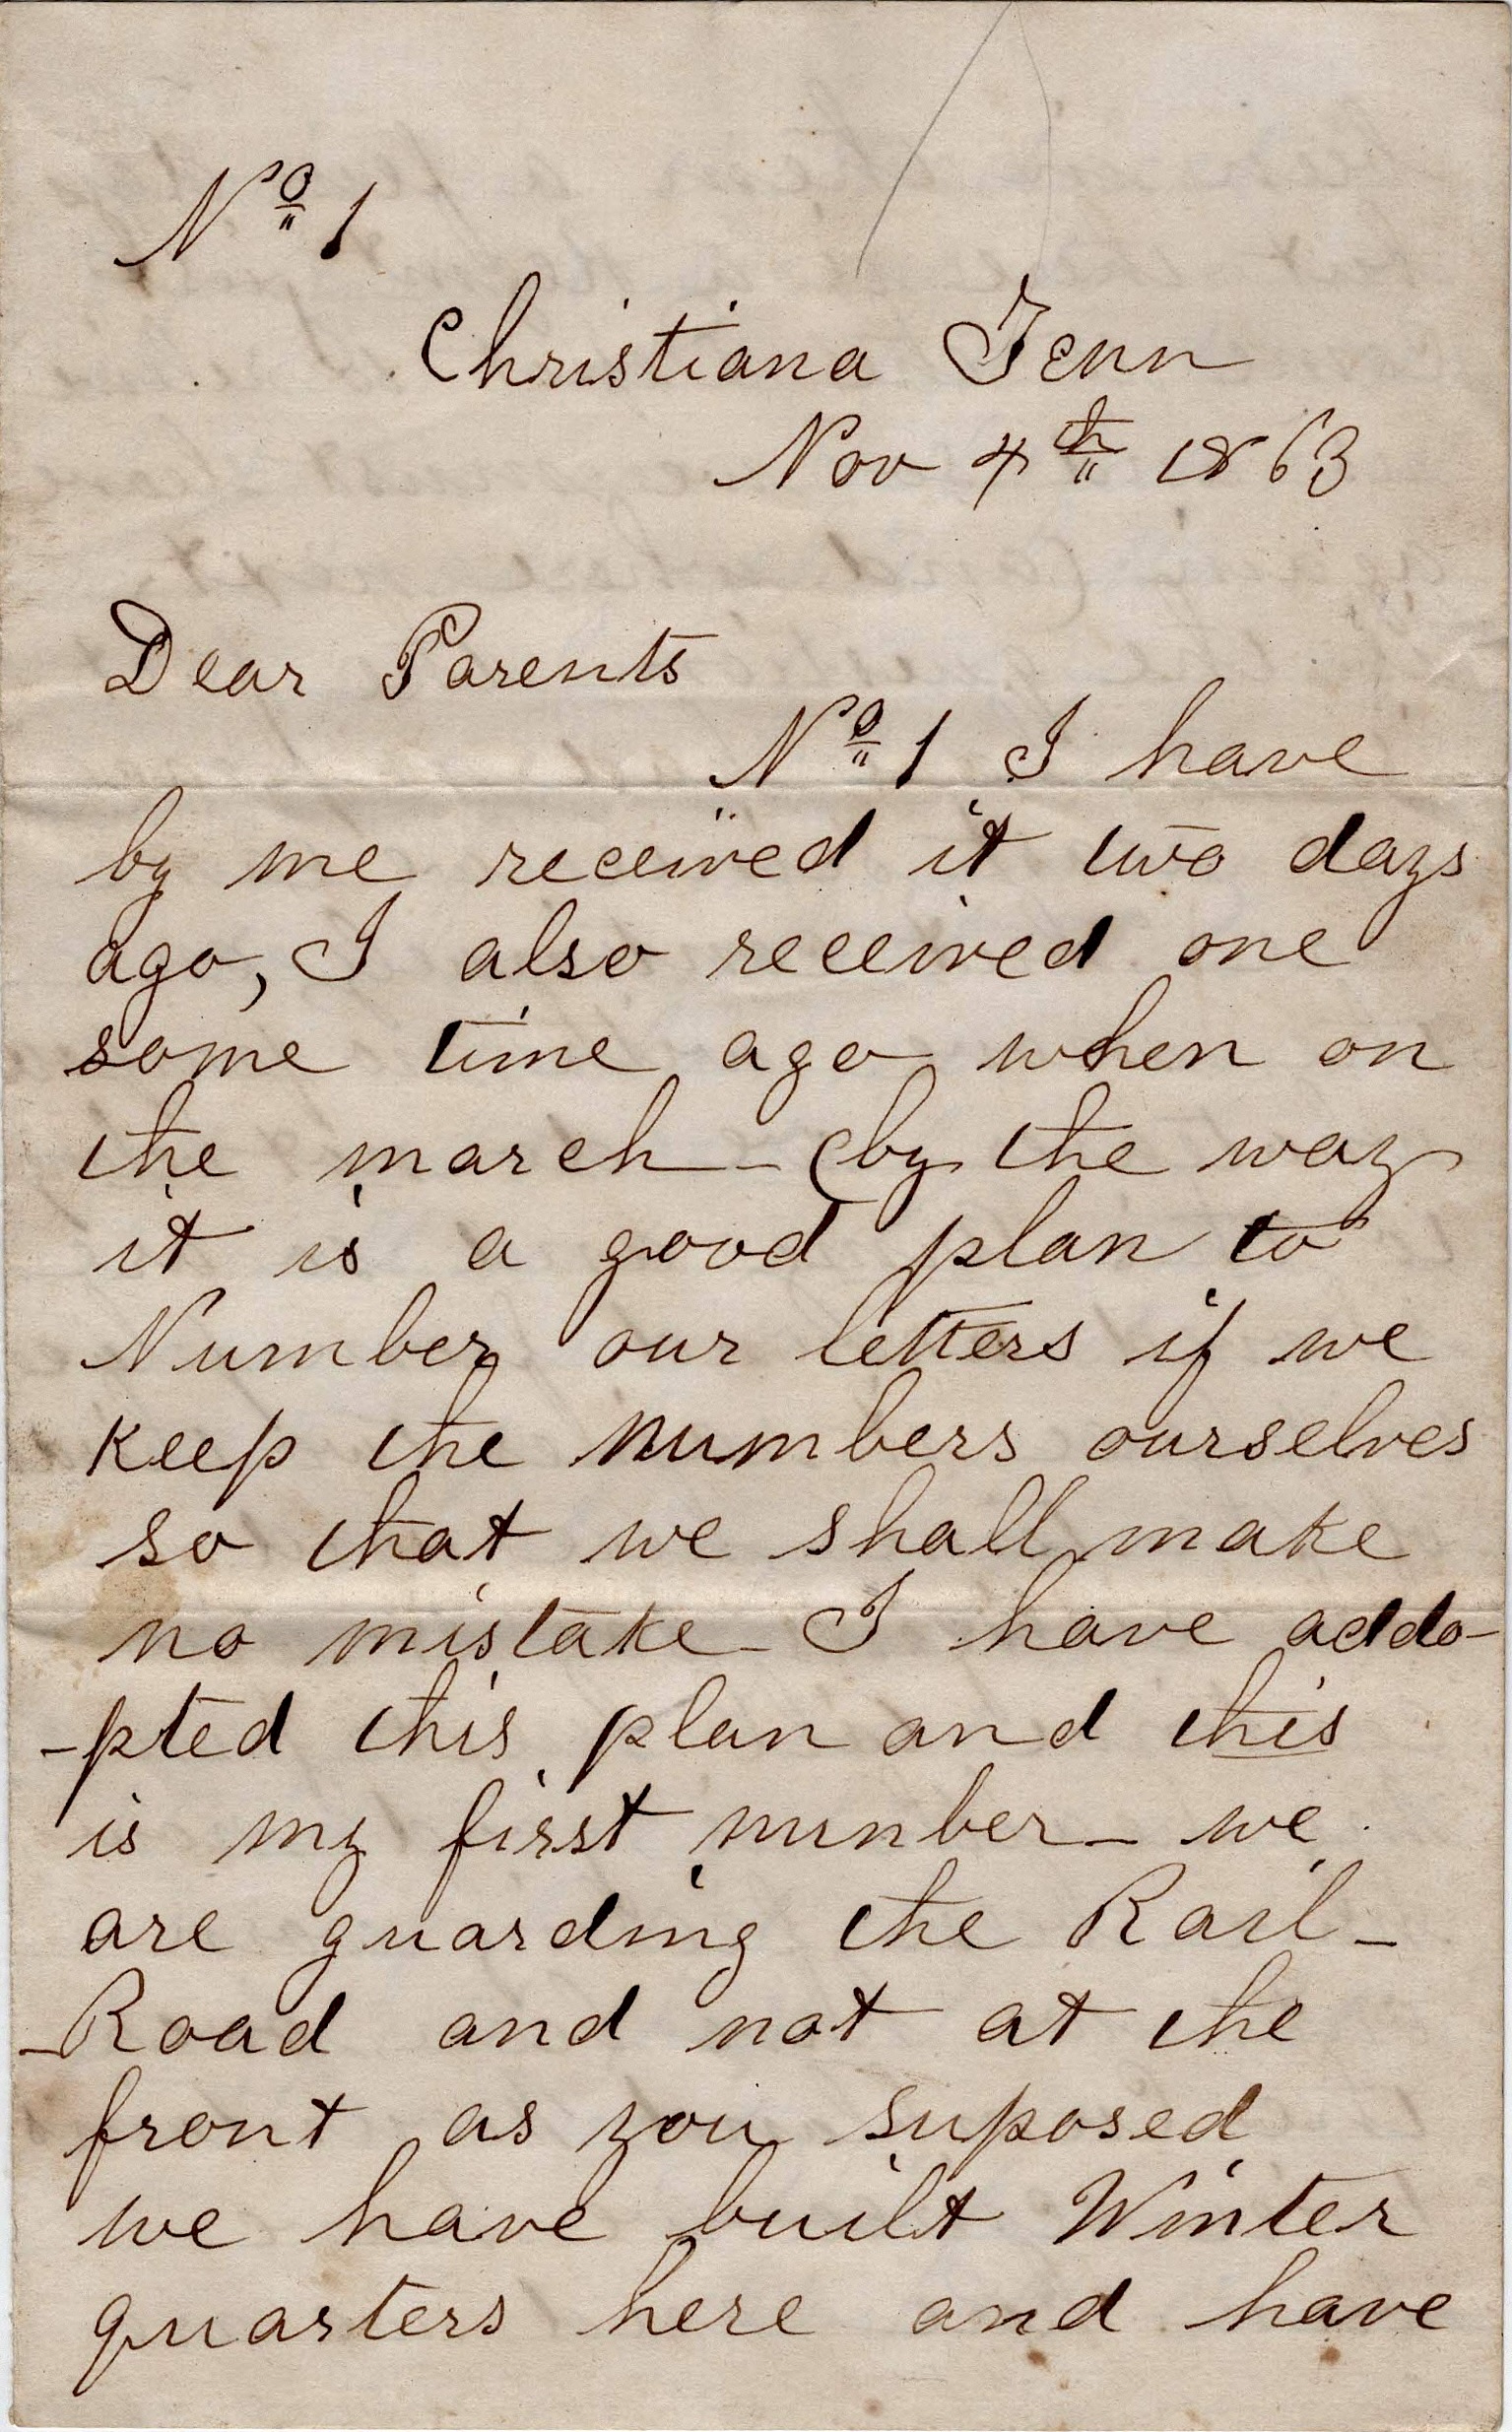 No 1
Christiana Tenn
Nov 4th 1863
Dear Parents
No 1 I have
by me received it two days
ago, I also received one
some time ago when on
the march - (by the way
it is a good plan to
Number our letters if we
keep the numbers ourselves
so that we shall make
no mistake - I have addo-
-pted this plan and this
is my first number - we
are guarding the Rail-
-Road and not at the
front as you suposed
we have built Winter
quarters here and have